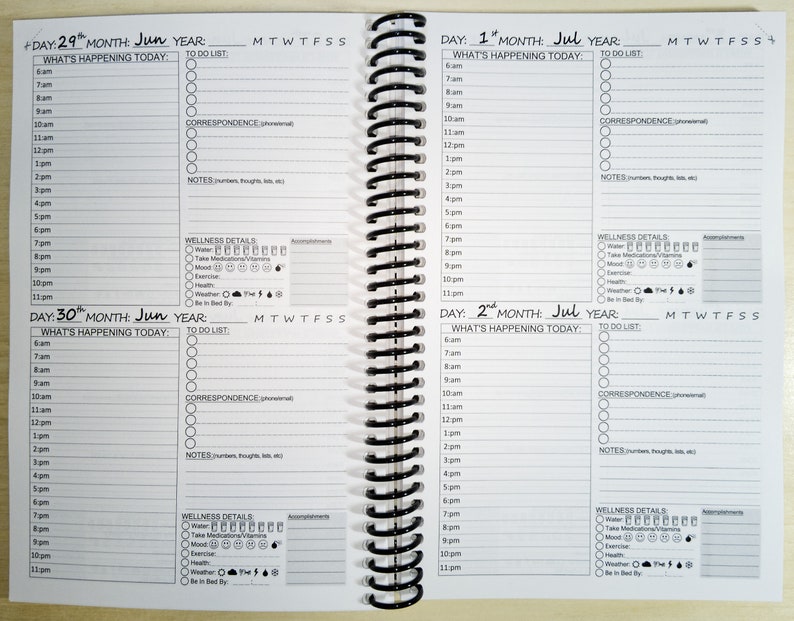 DAY: 29th MONTH: Jun YEAR: M T W T F S S
WHAT'S HAPPENING TODAY:
6:am
7:am
8:am
9:am
10:am
11:am
12:pm
1:pm
2:pm
3:pm
4:pm
5:pm
6:pm
7:pm
8:pm
9:pm
10:pm
11:pm
TO DO LIST:
CORRESPONDENCE:(phone/email)
NOTES:(numbers, thoughts, lists, etc)
WELLNESS DETAILS:
Water:
Take Medications/Vitamins
Mood:
Exercise:
Health:
Weather:
Be In Bed By: :
Accomplishments
DAY: 30th MONTH: Jun YEAR: M T W T F S S
WHAT'S HAPPENING TODAY:
6:am
7:am
8:am
9:am
10:am
11:am
12:pm
1:pm
2:pm
3:pm
4:pm
5:pm
6:pm
7:pm
8:pm
9:pm
10:pm
11:pm
TO DO LIST:
CORRESPONDENCE:(phone/email)
NOTES:(numbers, thoughts, lists, etc)
WELLNESS DETAILS:
Water:
Take Medications/Vitamins
Mood:
Exercise:
Health:
Weather:
Be In Bed By: :
Accomplishments
DAY: 1st MONTH: Jul YEAR: M T W T F S S
WHAT'S HAPPENING TODAY:
6:am
7:am
8:am
9:am
10:am
11:am
12:pm
1:pm
2:pm
3:pm
4:pm
5:pm
6:pm
7:pm
8:pm
9:pm
10:pm
11:pm
TO DO LIST:
CORRESPONDENCE:(phone/email)
NOTES:(numbers, thoughts, lists, etc)
WELLNESS DETAILS:
Water:
Take Medications/Vitamins
Mood:
Exercise:
Health:
Weather:
Be In Bed By: :
Accomplishments
DAY: 2nd MONTH: Jul YEAR: M T W T F S S
WHAT'S HAPPENING TODAY:
6:am
7:am
8:am
9:am
10:am
11:am
12:pm
1:pm
2:pm
3:pm
4:pm
5:pm
6:pm
7:pm
8:pm
9:pm
10:pm
11:pm
TO DO LIST:
CORRESPONDENCE:(phone/email)
NOTES:(numbers, thoughts, lists, etc)
WELLNESS DETAILS:
Water:
Take Medications/Vitamins
Mood:
Exercise:
Health:
Weather:
Be In Bed By: :
Accomplishments